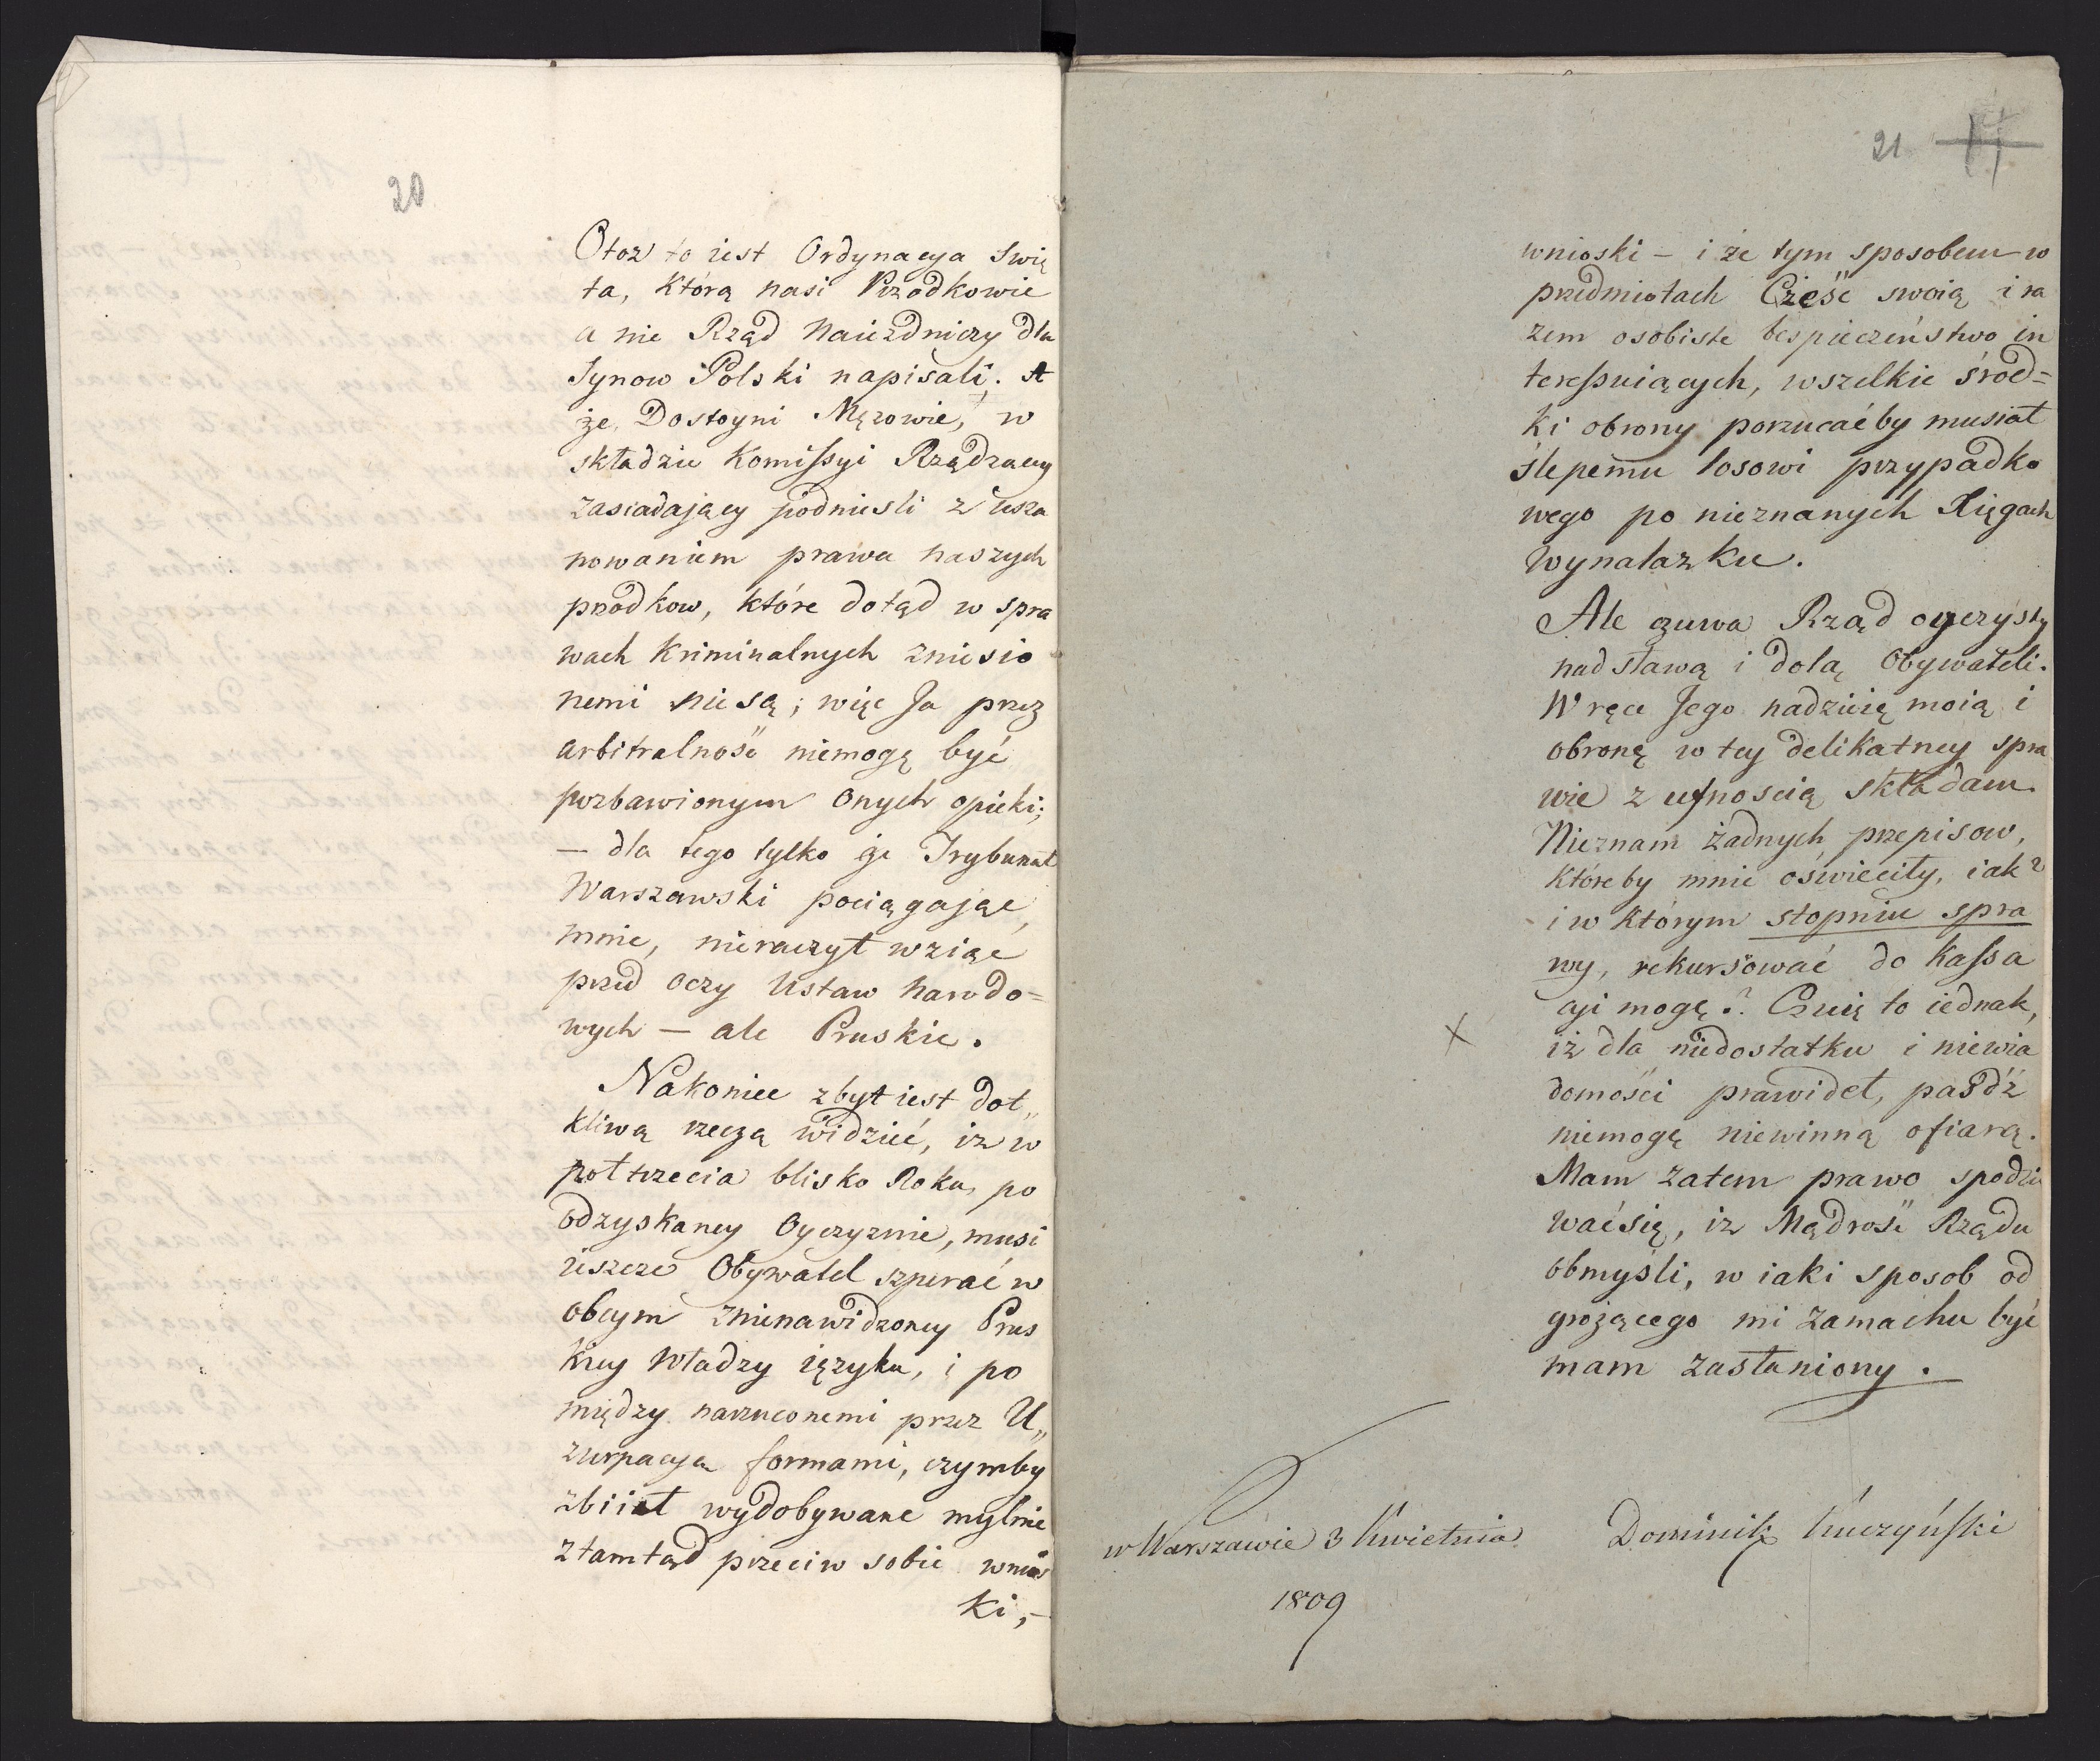 20
Otoz to iest Ordynacya Swię
ta, którą nasi Przodkowie
a nie Rząd Naiezdniczy dla
Synow Polski napisali. A
że, Dostoyni Mężowie, w
składzie Komissyi Rządzącey
zasiadający podniesli z usza
nowaniem prawa naszych
przodkow, które dotąd w spra
wach kriminalnych zniesio
nemi nie są; więc Ja przez
arbitralność niemogę być
pozbawionym onych opieki;
— dla tego tylko że Trybunał
Warszawski pociągając
mnie, nieraczył wziąć
przed oczy Ustaw narodo=
wych — ale Pruskie.
Nakoniec zbyt iest dot„
kliwą rzeczą widzieć, iz w
poł trzecia blisko Roku, po
odzyskaney Oyczyznie, musi
ieszcze Obywatel szperać w
obcym znienawidzoney Prus
kiey Władzy ięzyku, i po
między narzuconemi przez U„
zurpacya formami, czymby
zbiiał wydobywane mylnie
ztamtąd przeciw sobie wnios
ki,–
21
wnioski – i że tym sposobem w
przedmiotach Cześć swoią i ra
zem osobiste bespieczeństwo in
teressuiących, wszelkie środ=
ki obrony porzucaćby musiał
ślepemu losowi przypadko
wego po nieznanych Xięgach
wynalazku.
Ale czuwa Rząd oyczysty
nad sławą i dolą Obywateli.
W ręce Jego nadzieię moią i
obronę w tey delikatney spra
wie z ufnoscią składam.
Nieznam żadnych przepisow,
któreby mnie oświeciły, iak?
i w którym stopniu spra
wy, rekursować do Kassa
cyi mogę? Czuię to iednak,
X
iż dla niedostatku i niewia
domości prawideł, paśdź
niemogę niewinną ofiarą.
Mam zatem prawo spodzie
waćsię, iz Mądrość Rządu
obmyśli, w iaki sposob od
grożącego mi zamachu być
mam zasłaniony.
w Warszawie 3 Kwietnia
1809
Dominik Kuczyński